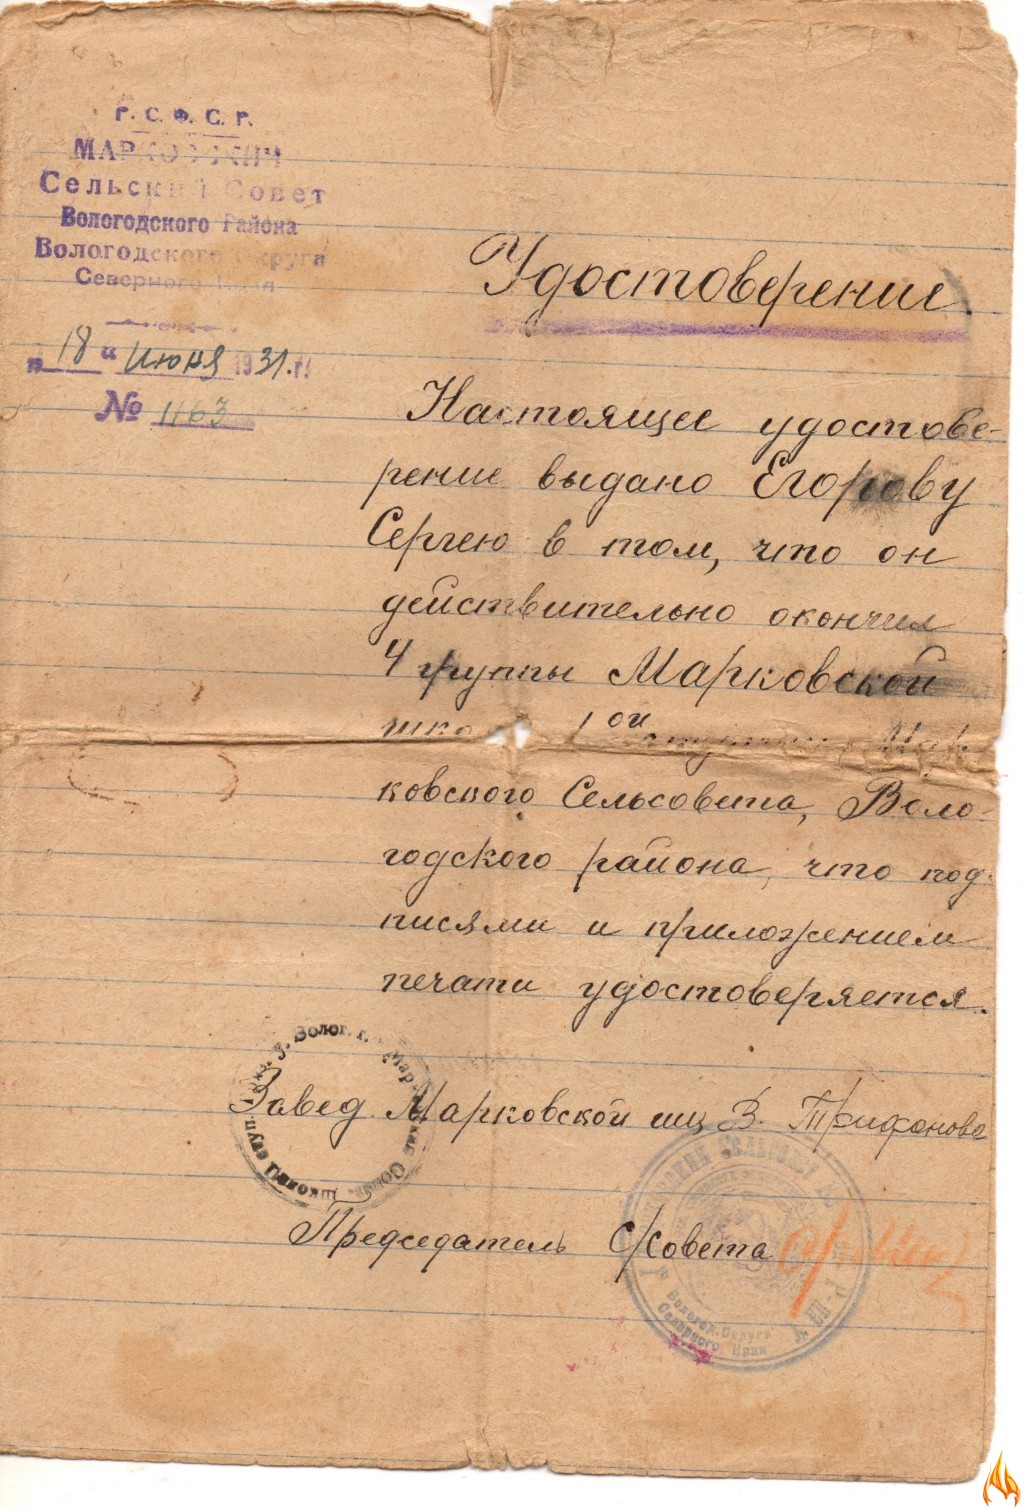 Р. С. Ф. С. Р.
МАРКОВСКИЙ
Сельский Совет
Вологодского Района
Вологодского Округа
Северного Края
„ 18 “ Июня 1931. г.
№ 1163
Удостоверение
Настоящее удостове-
рение выдано Егорову
Сергею в том, что он
действительно окончил
4 группы Марковской
1ой ступени, Мар
ковского Сельсовета, Воло-
годского района, что под-
писями и приложением
печати удостоверяется.
Волог. г.
Школа I ступ.
Завед. Марковской шк В. Трифонова
Председатель С/совета
Вологод. Округа
Северного Края